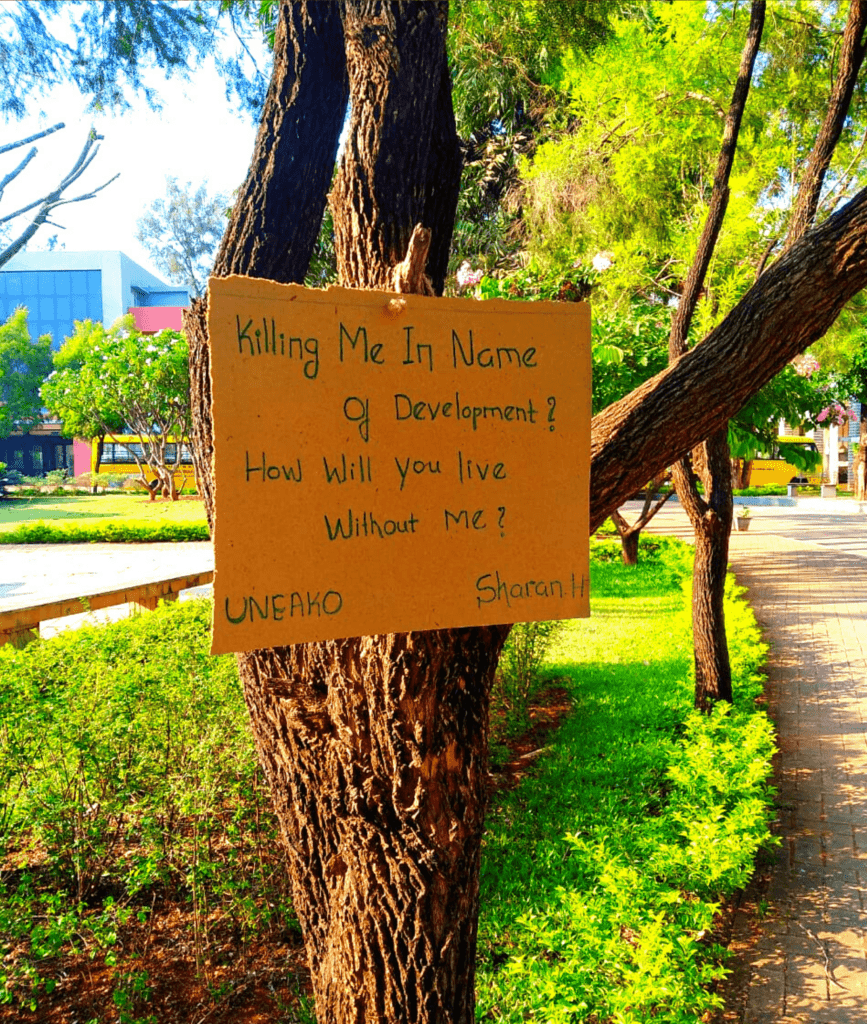 Killing Me In Name
of Development?
How Will you live
Without Me?
UNEAKO
Sharan.H